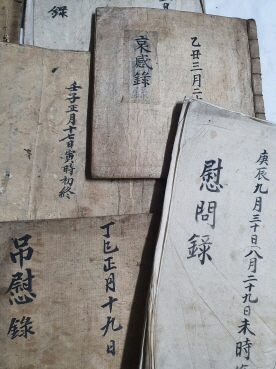 錄
哀感錄
乙丑三月二十
壬子正月十七日寅時初終
慰問錄
庚辰九月三十日八月二十九日未時
吊慰錄
丁巳正月十九日